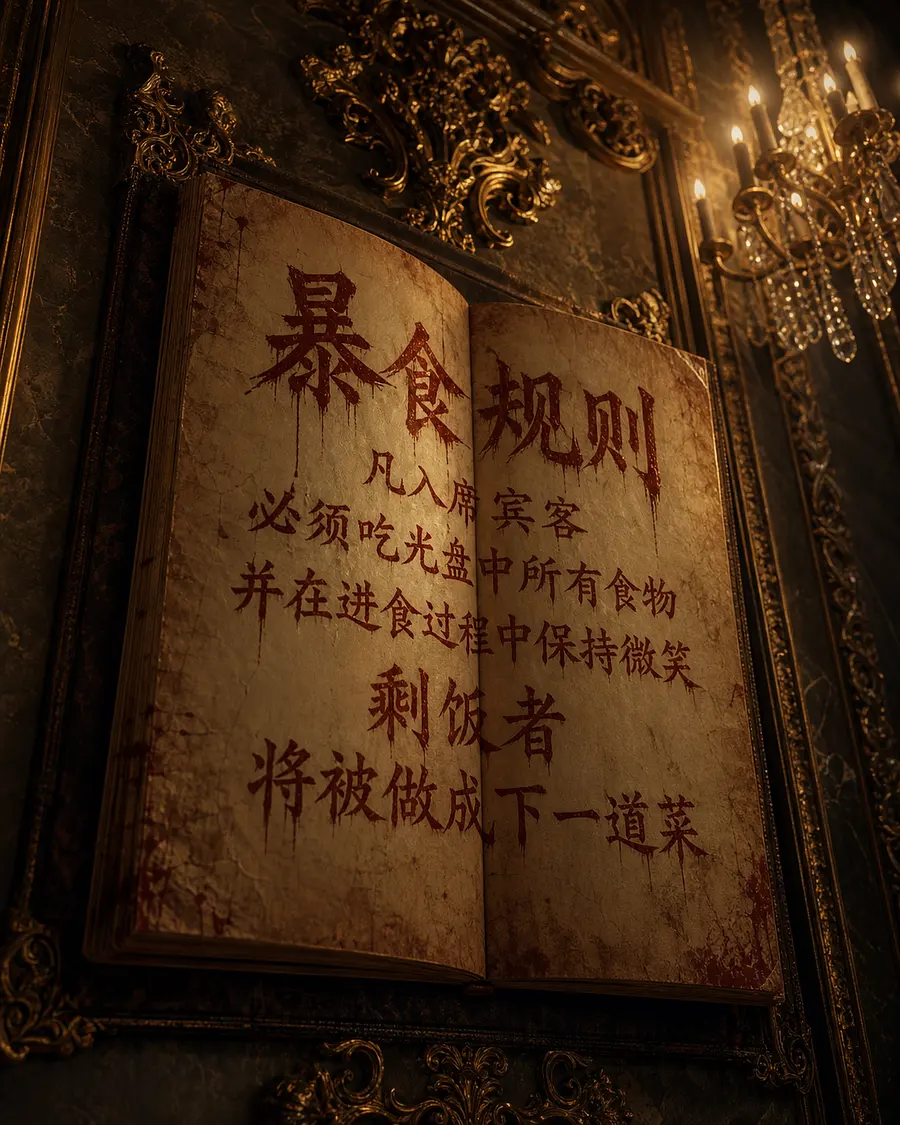 暴食规则
凡入席宾客
必须吃光盘中所有食物
并在进食过程中保持微笑
剩饭者
将被做成下一道菜